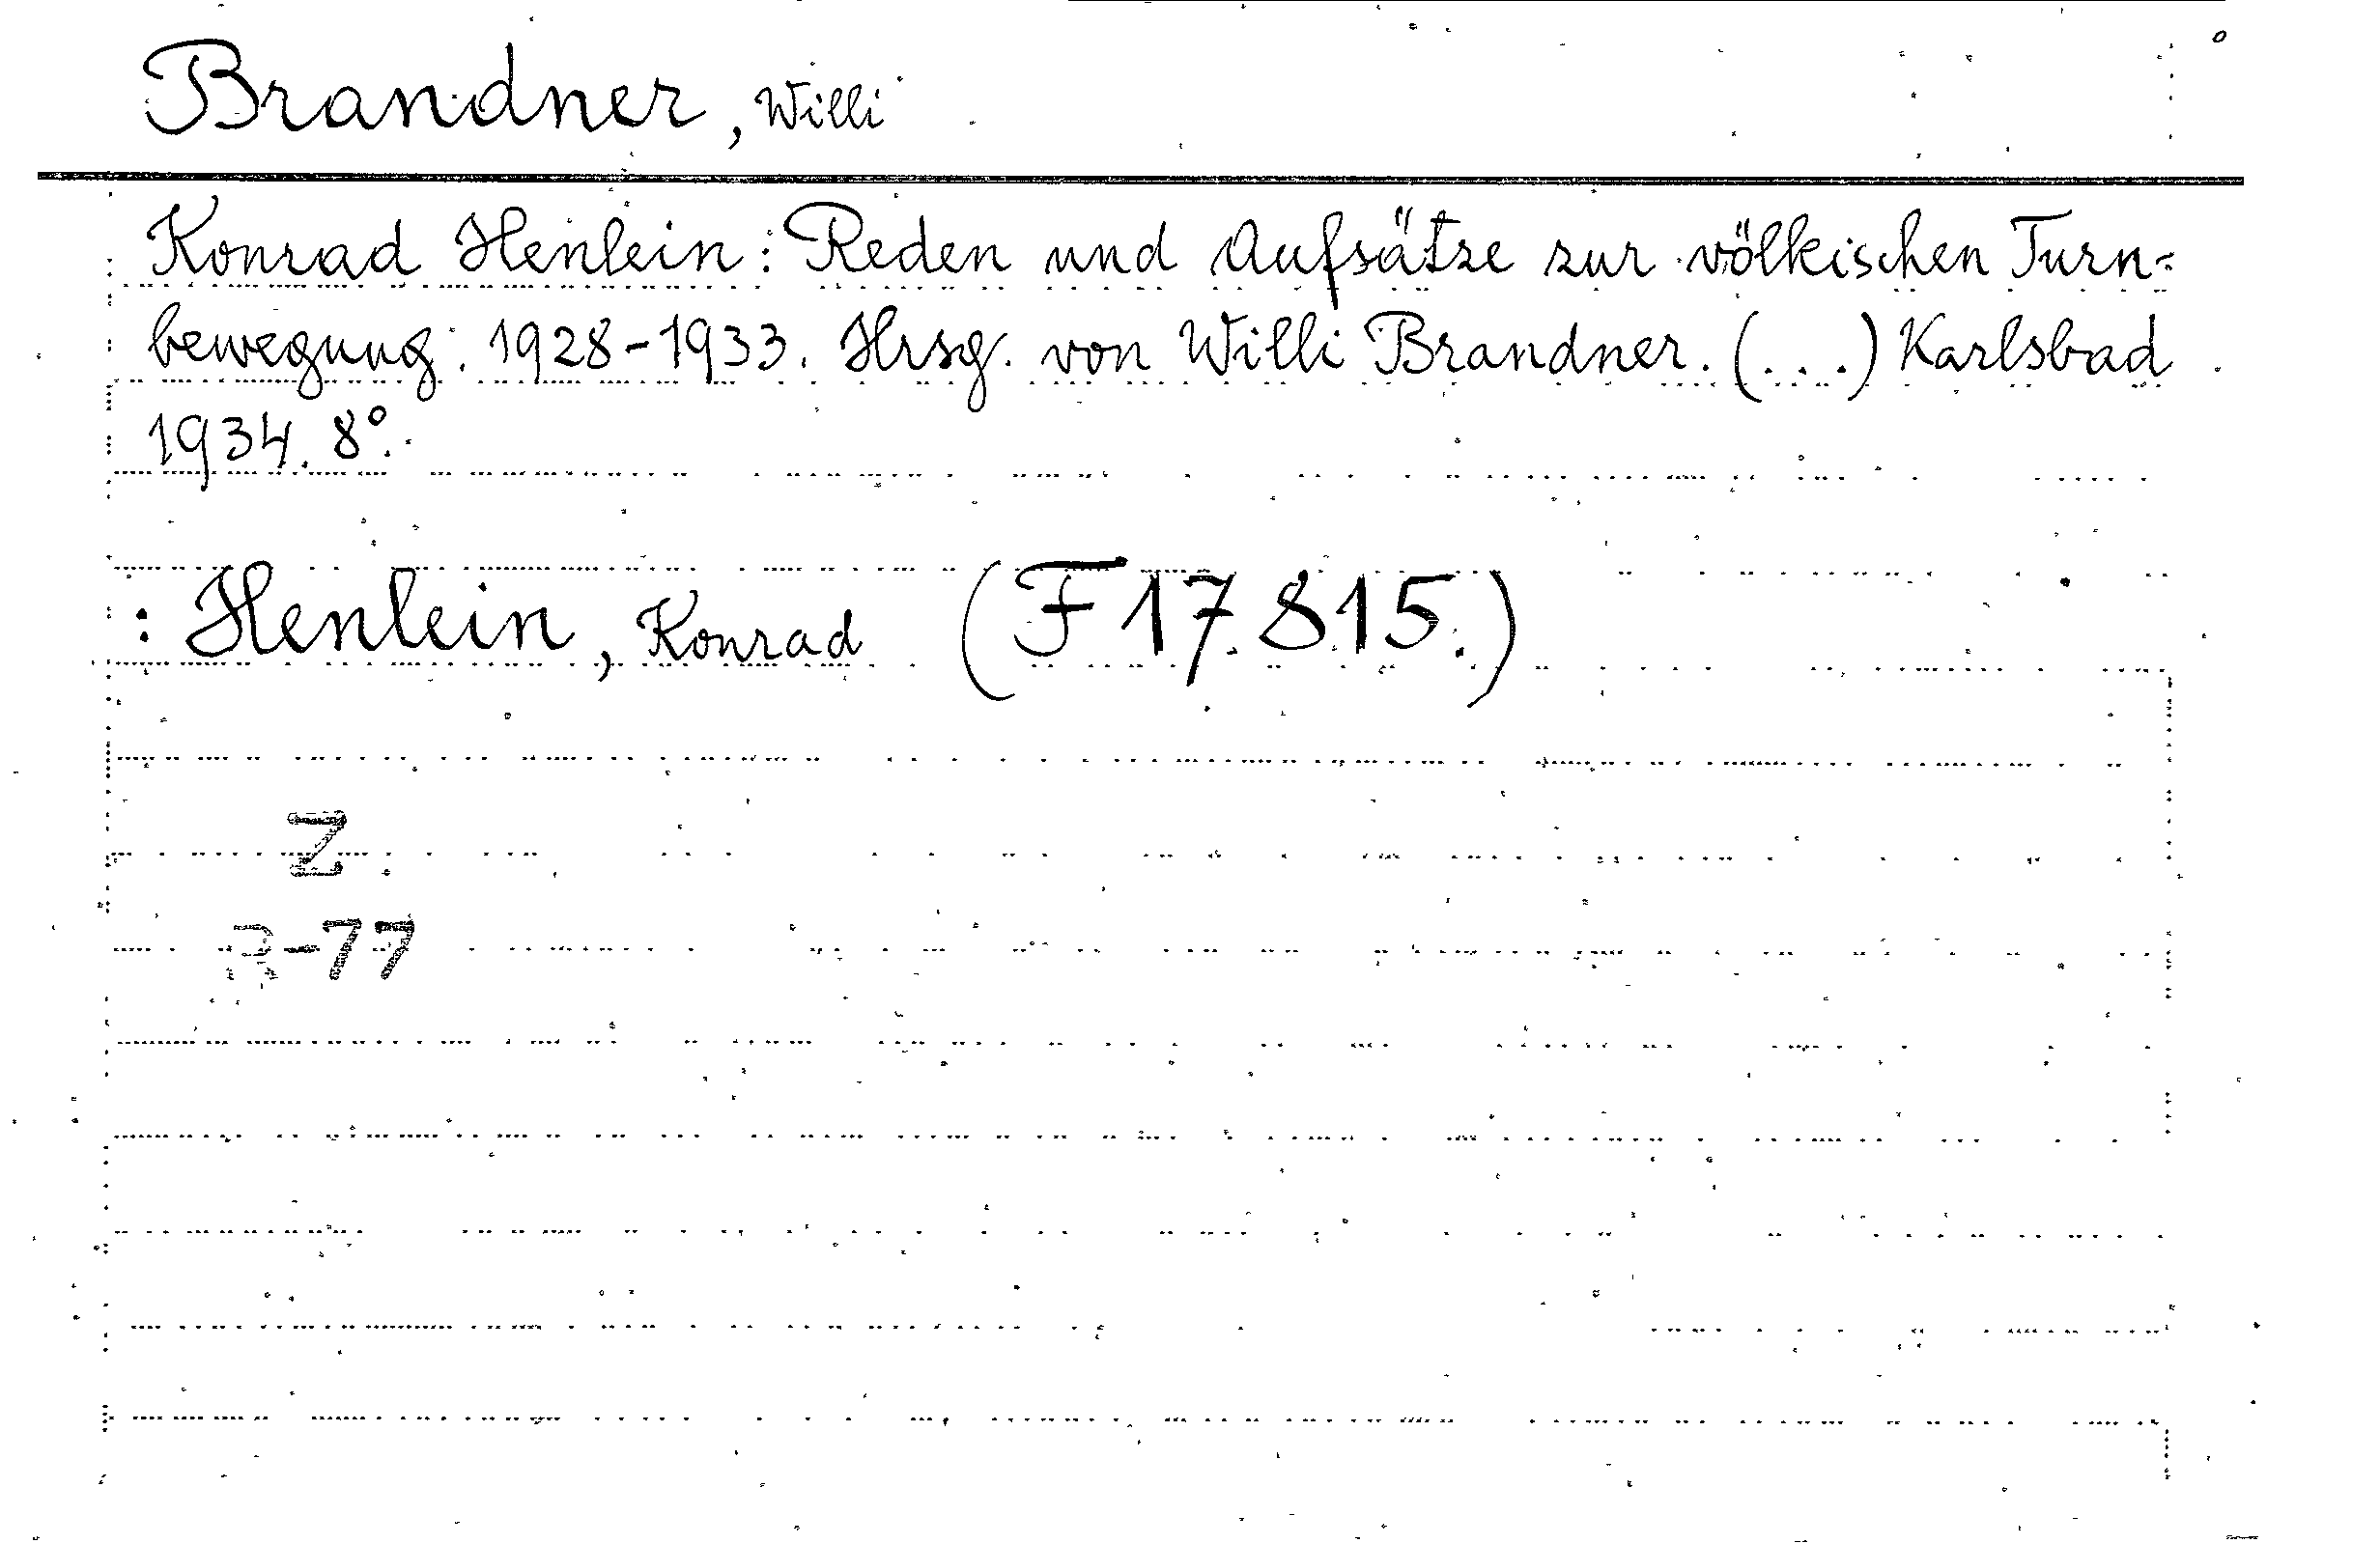 Brandner, Willi
Konrad Henlein: Reden und Aufsätze zur völkischen Turn-
bewegung: 1928-1933. Hrsg. von Willi Brandner. (...) Karlsbad
1934. 8°.
: Henlein, Konrad (F 17.815.)
Z
R-77